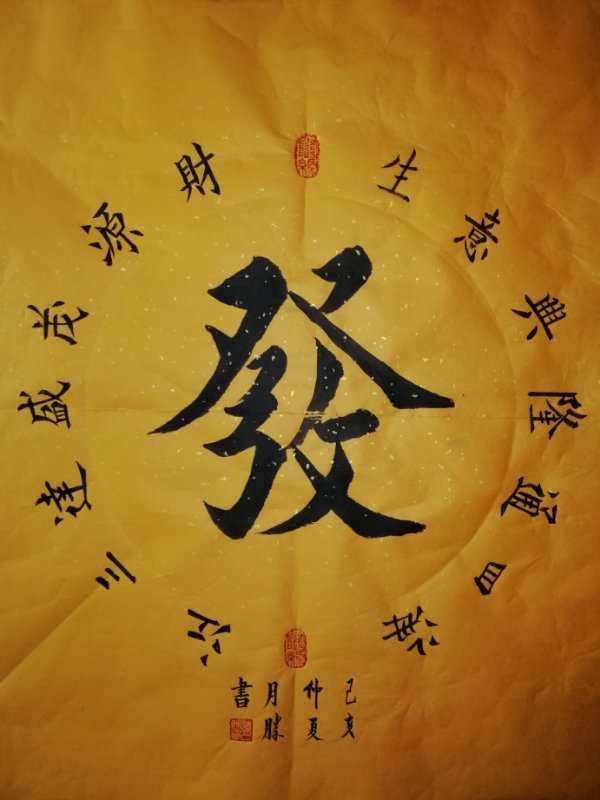 發
生意興隆通四海
財源茂盛達三江
己亥
仲夏
月勝
書